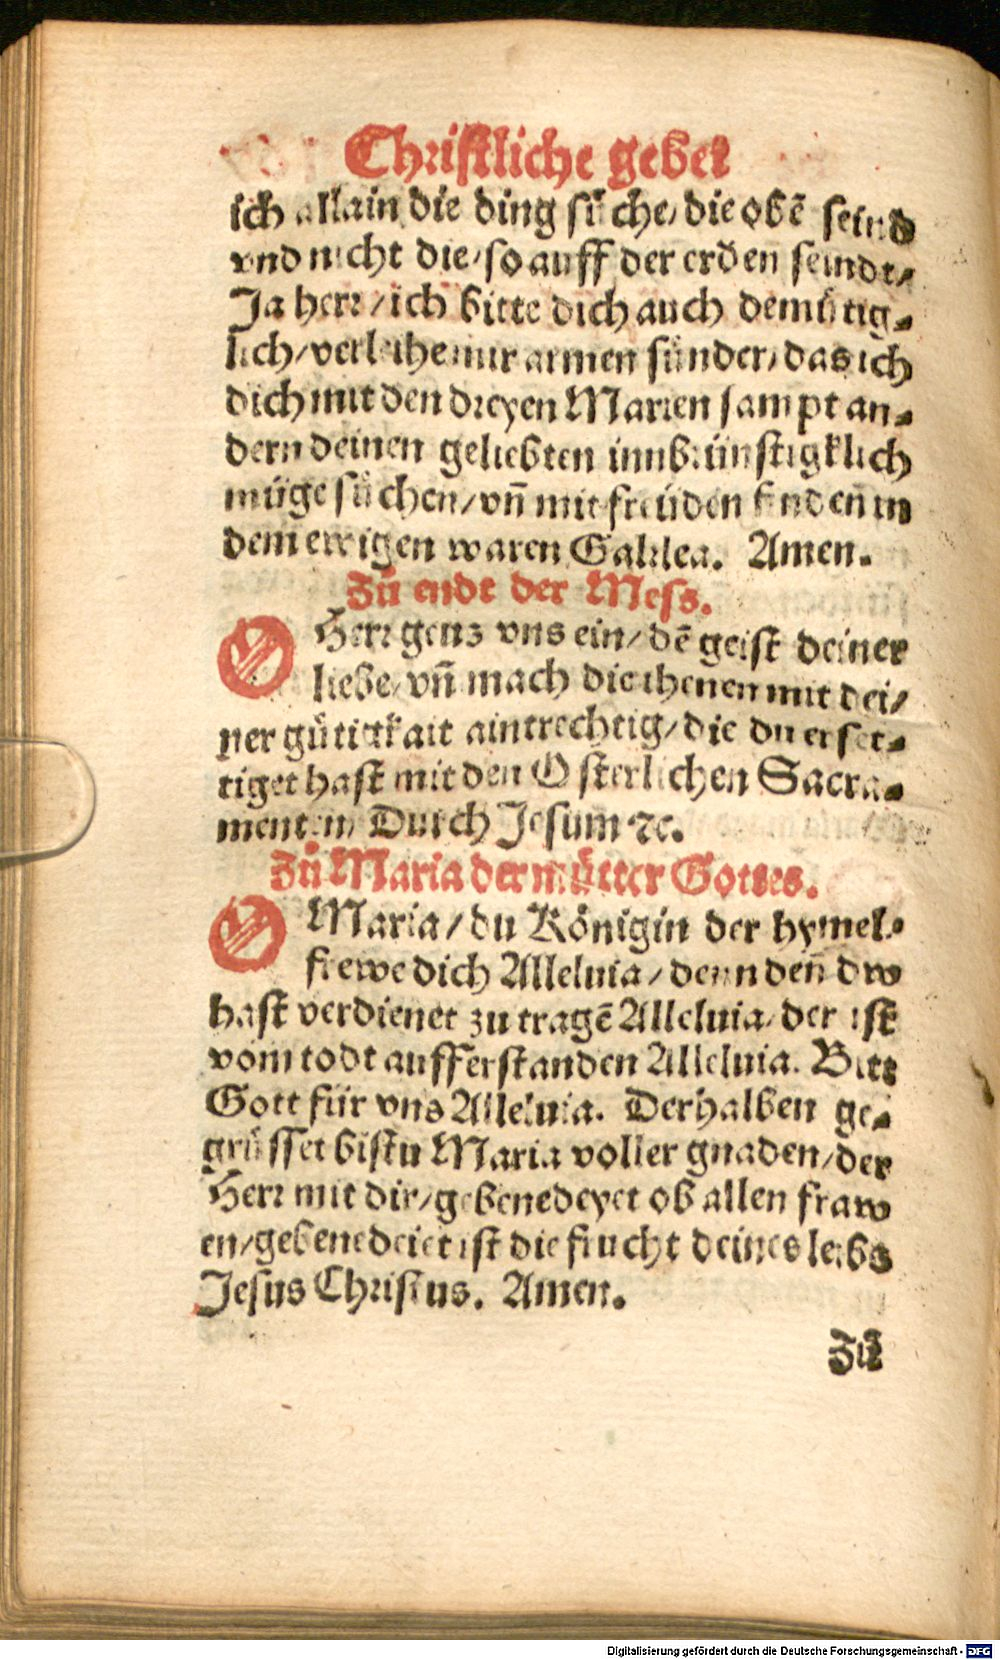 Christliche gebet
ich allain die ding sůche/ die obē seind
vnd nicht die/ so auff der erden seindt/
Ja herr/ ich bitte dich auch demůtig-
lich/ verleihe mir armen sünder/ das ich
dich mit den dreyen Marien sampt an-
dern deinen geliebten innbrünstigklich
müge sůchen/ vñ mit freüden finden in
dem ewigen waren Galilea. Amen.
Zů endt der Mess.
O Herr geuz vns ein/ dē geist deiner
liebe/ vñ mach die ihenen mit dei/
ner gůtigkait aintrechtig/ die du erset-
tiget hast mit den Osterlichen Sacra-
menten/ Durch Jesum ꝛc.
Zů Maria der můtter Gottes.
O Maria/ du Königin der hymel-
frewe dich Alleluia/ denn den dw
hast verdienet zu tragē Alleluia/ der ist
vom todt aufferstanden Alleluia. Bitt
Gott für vns Alleluia. Derhalben ge-
grůsset bistu Maria voller gnaden/ der
Herr mit dir/ gebenedeyet ob allen fraw
en/ gebenedeiet ist die frucht deines leibs
Jesus Christus. Amen.
Zů
Digitalisierung gefördert durch die Deutsche Forschungsgemeinschaft - DFG